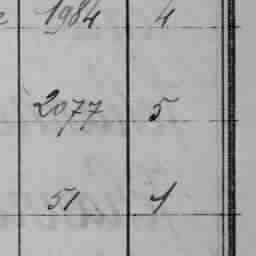 1984 4
2077 5
51 1